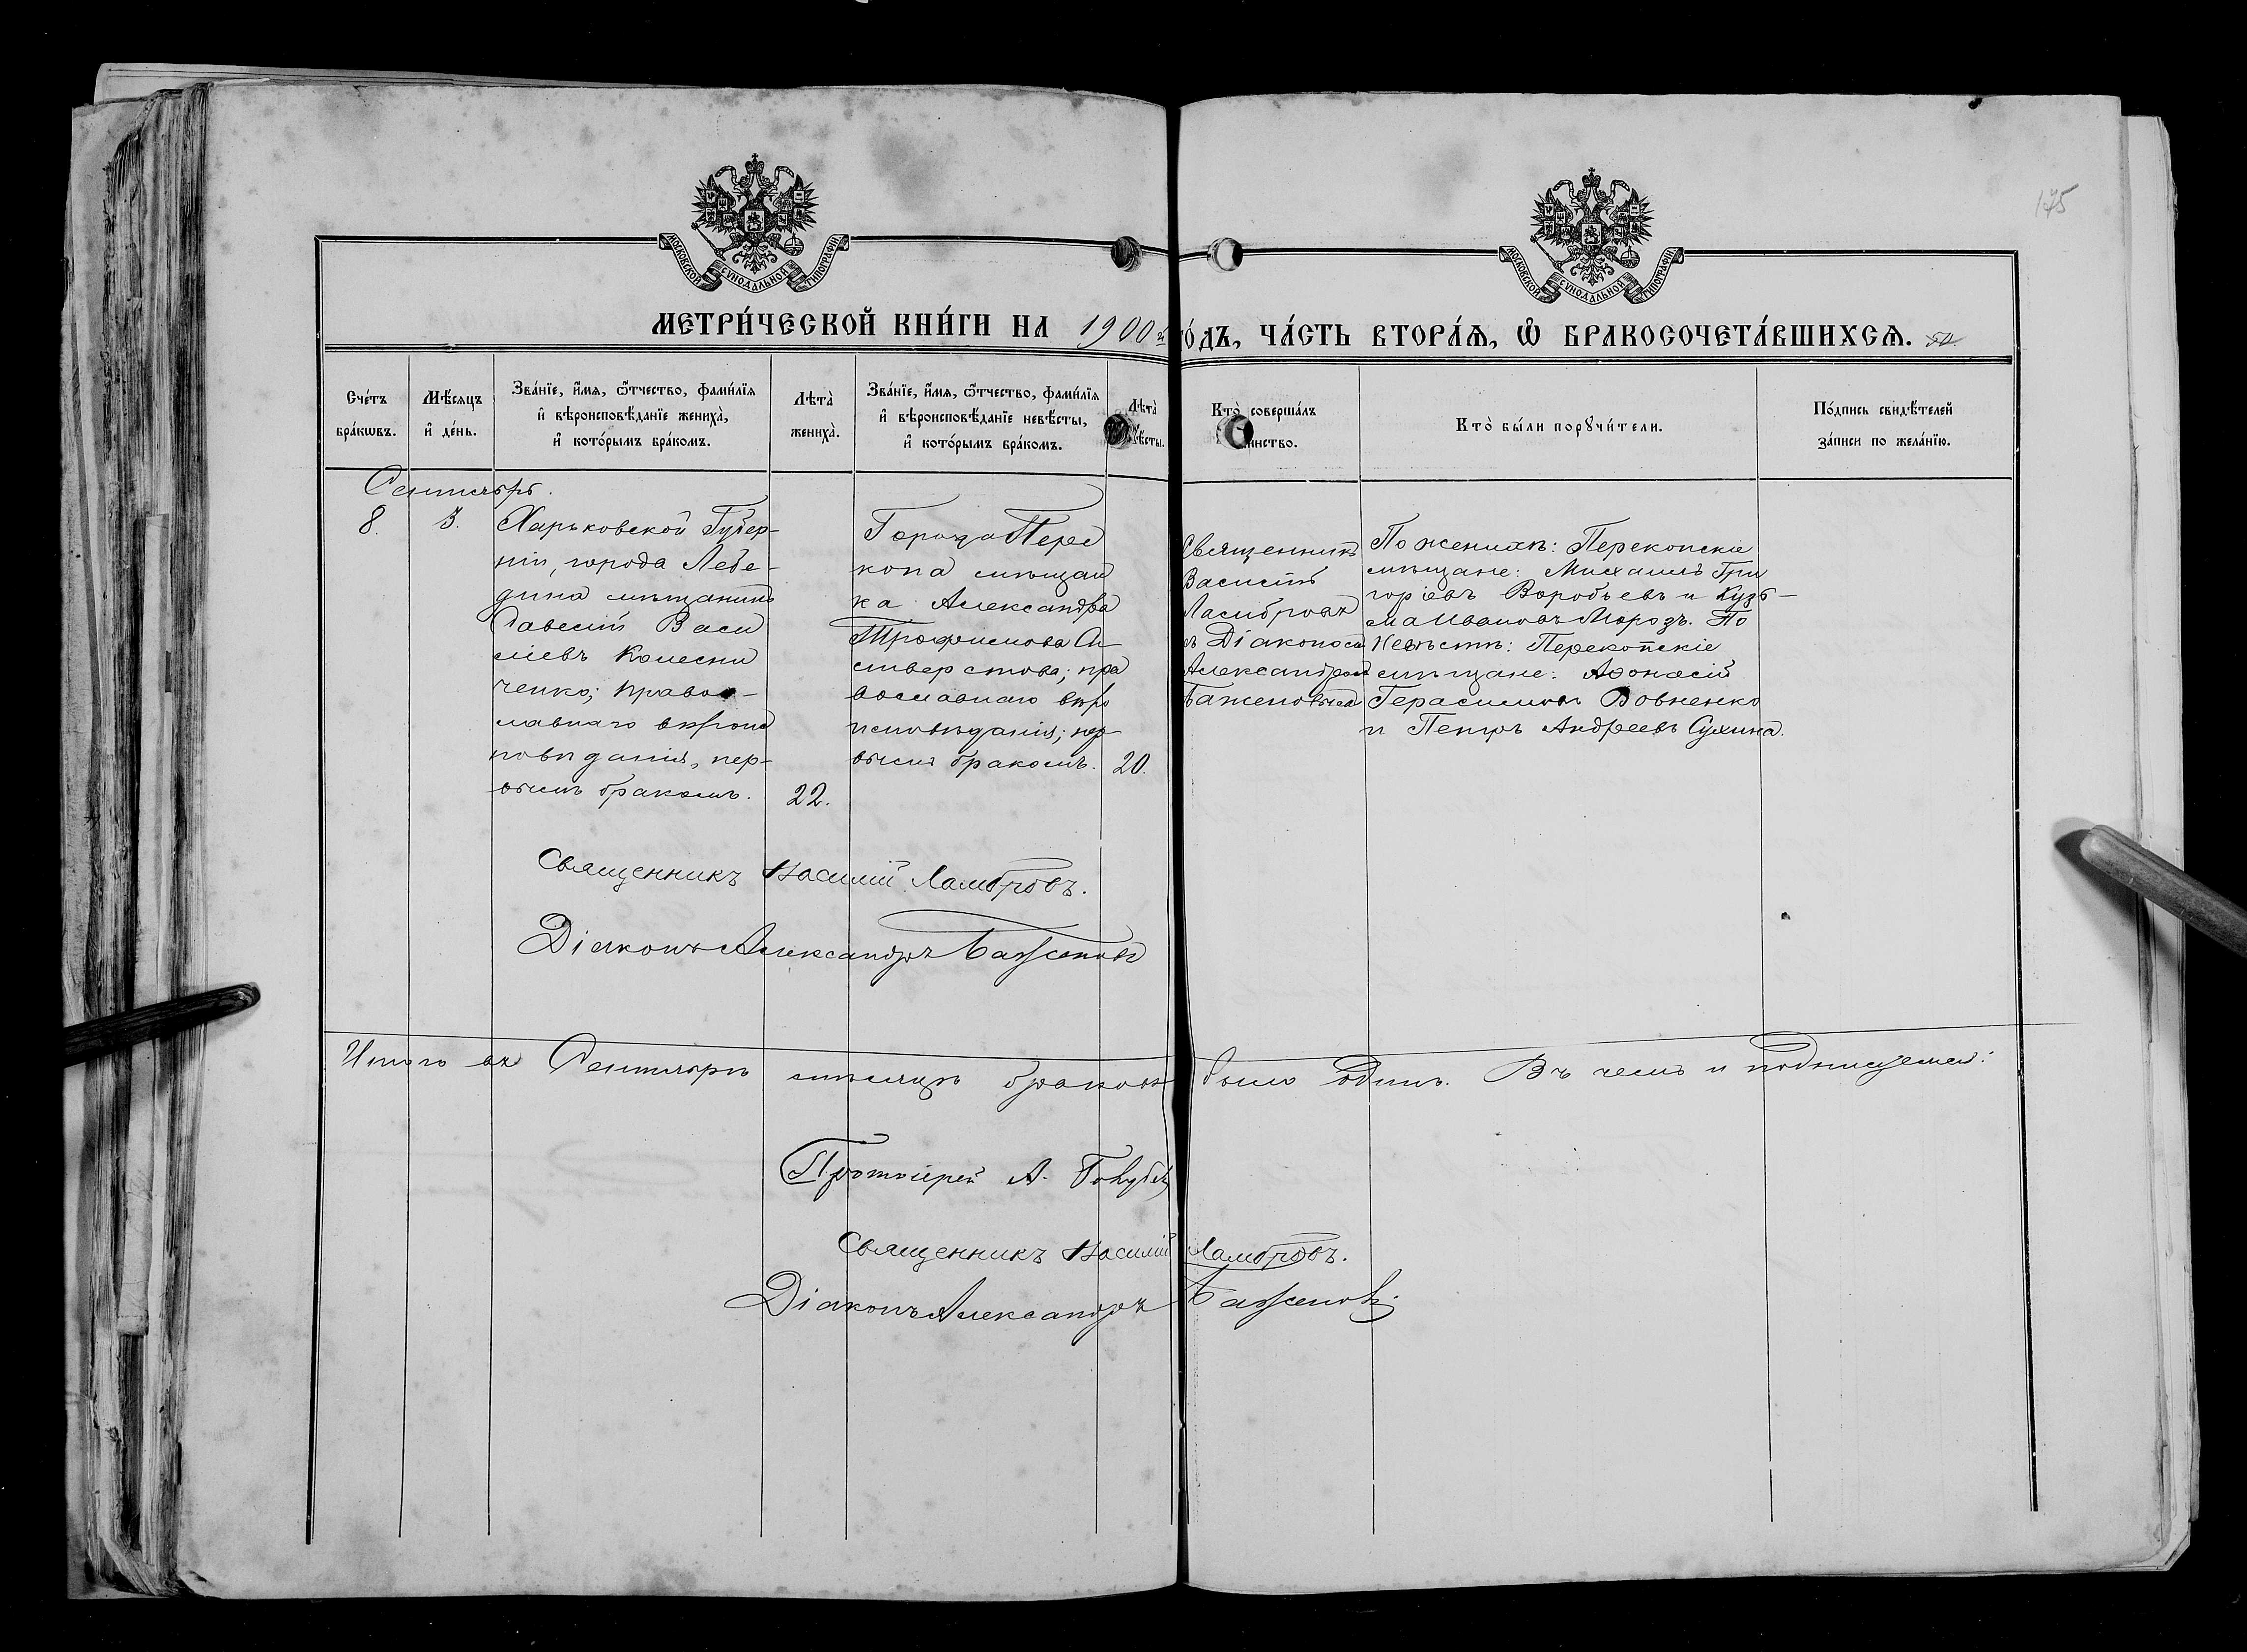 175
МОСКОВСКОЙ СѴНОДАЛЬНОЙ ТИПОГРАФІИ
МОСКОВСКОЙ СѴНОДАЛЬНОЙ ТИПОГРАФІИ
МЕТРИ́ЧЕСКОЙ КНИ́ГИ НА 1900й го́дъ, ЧА́СТЬ ВТОРА́Ѧ, Ѡ БРАКОСОЧЕТА́ВШИХСѦ. 52.
Сче́тъ
бра́кѡвъ.
Мѣ́сяцъ
и҆ де́нь.
Зва́нїе, и҆́мѧ, ѻ҆́тчество, фами́лїѧ
и҆ вѣроисповѣ́данїе жениха̀,
и҆ кото́рымъ бра́комъ.
Лѣта̀
жениха̀.
Зва́нїе, и҆́мѧ, ѻ҆́тчество, фами́лїѧ
и҆ вѣроисповѣ́данїе невѣ́сты,
и҆ кото́рымъ бра́комъ.
Лѣта̀
вѣ́сты.
Кто̀ соверша́лъ
инство.
Кто̀ бы́ли порꙋчи́тели.
По́дпись свидѣ́телей
за́писи по жела́нїю.
Сентябрь.
8.
3.
Харьковской Губер-
ніи, города Лебе-
дина мѣщанинъ
Савелій Васи
ліевъ Колесни
ченко; право-
славнаго вѣроис
повѣданія, пер-
вымъ бракомъ.
22.
Города Пере
копа мѣщан
ка Александра
Трофимова Си
ливерстова; пра
вославнаго вѣро
исповѣданія; пер-
вымъ бракомъ.
20.
Священникъ
Василій
Ламбровъ
съ Діакономъ
Александромъ
Баженовымъ
По женихѣ: Перекопскіе
мѣщане: Михаилъ Гри
горіевъ Воробьевъ и Кузь-
ма Ивановъ Морозъ. По
невѣстѣ: Перекопскіе
мѣщане: Афонасій
Герасимовъ Вовненко
и Петръ Андреевъ Сухина.
Священникъ Василій Ламбровъ.
Діаконъ Александръ Баженовъ
Итого въ Сентябрѣ мѣсяцѣ браковъ было одинъ. Въ чемъ и подписуемся:
Протоіерей А. Голубевъ
Священникъ Василій Ламбровъ.
Діаконъ Александръ Баженовъ.